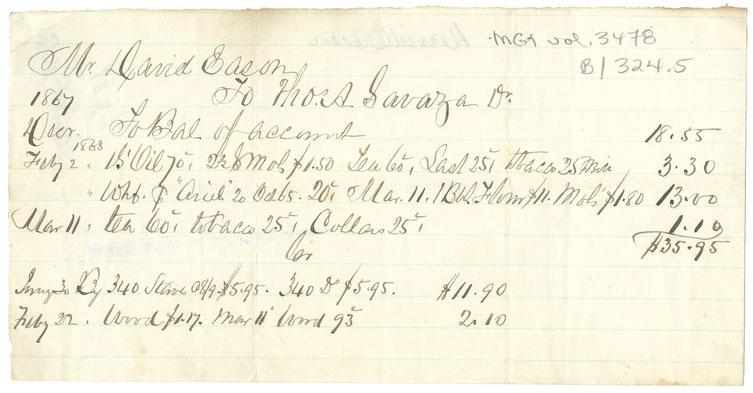 MG1 vol. 3478
B/324.5
Mr David Eason
1867 To Thos. A Savaza Dr
To Bal of account 18.55
1868
Feby 2 " Oil 70, Mols $1.50 Tea 60, Last 25, tobaco 25 3.30
" Wht. & "Ariel" 20, Mar. 11. 1 Bbl Flour $11. Mols $1.80 13.00
Mar 11, tea 60, tobaco 25, Collars 25, 1.10
$35.95
Cr
By 340 Staves $5.95. 340 Do $5.95. $11.90
Feby 22. Wood $1.17. Mar 11 Wood 93 2.10